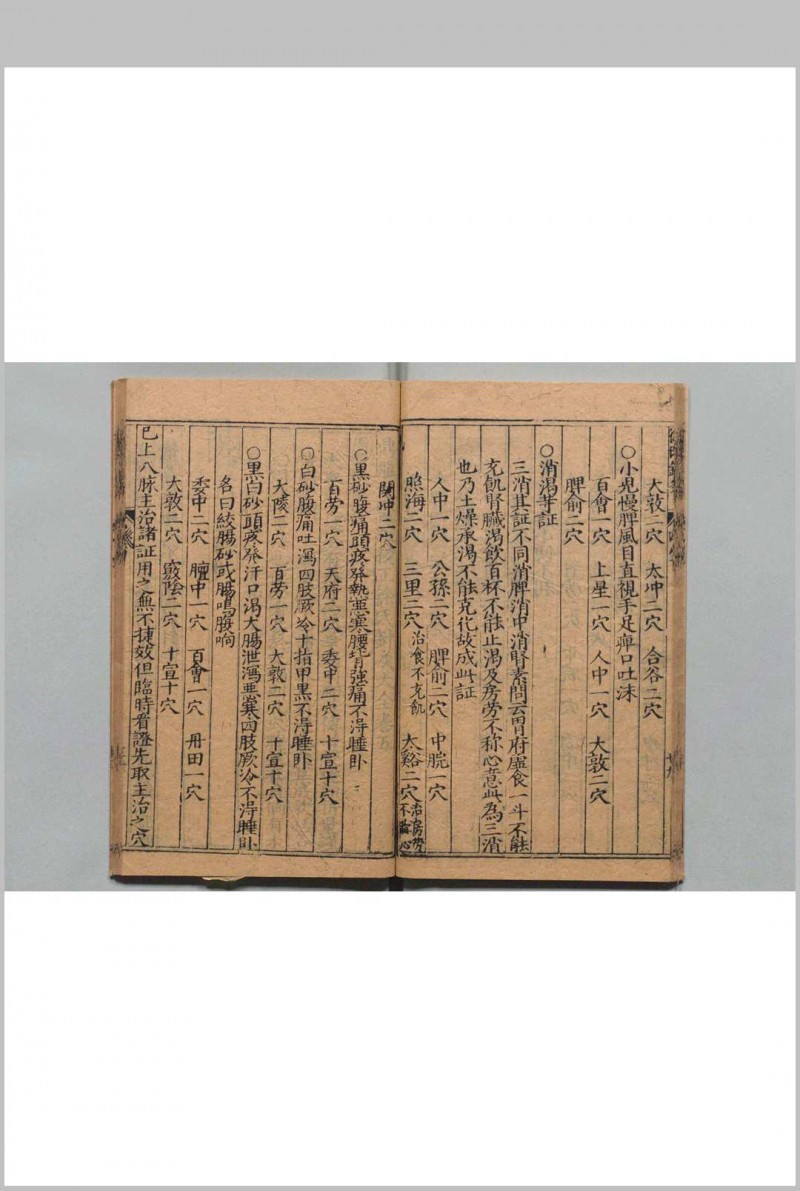 大敦二穴 太冲二穴 合谷二穴
○小児慢脾風目直視手足痹口吐沫
百會一穴 上星一穴 人中一穴 大敦二穴
脾俞二穴
○消渴等証
三消其証不同消脾消中消腎素問云胃府虛食一斗不能
充飢腎臟渴飲百杯不能止渴及房勞不称心意此為三消
也乃土燥承渴不能克化故成此証
人中一穴 公孫二穴 脾俞二穴 中脘一穴
照海二穴 三里二穴治食不充飢 太谿二穴治房勞不稱心
関冲二穴
○黑砂腹痛頭疼發熱惡寒腰背強痛不淂睡卧
百劳一穴 天府二穴 委中二穴 十宣十穴
○白砂腹痛吐瀉四肢厥冷十指甲黑不淂睡卧
大陵二穴 百劳一穴 大敦二穴 十宣十穴
○黑白砂頭疼發汗口渴大腸泄瀉惡寒四肢厥冷不淂睡卧
名曰絞腸砂或腸鳴腹响
委中二穴 膻中一穴 百會一穴 丹田一穴
大敦二穴 竅陰二穴 十宣十穴
已上八脉主治諸証用之無不捷效但臨時看證先取主治之穴